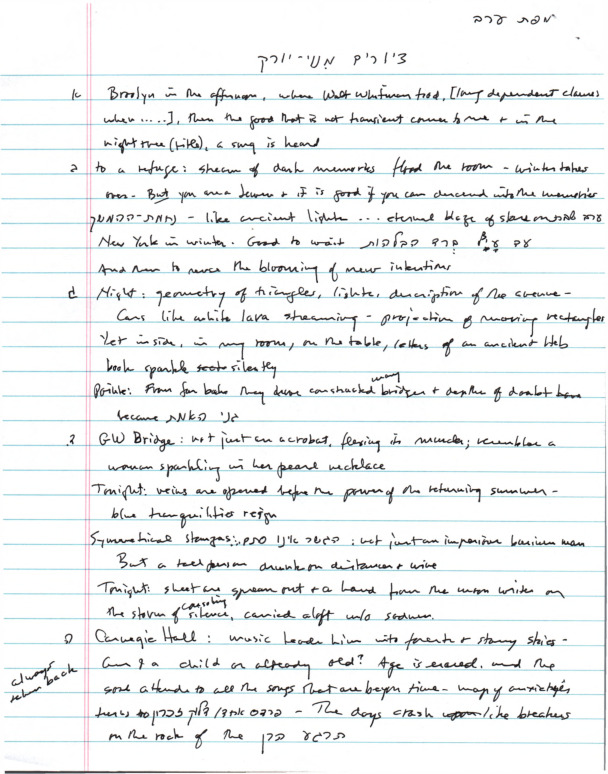 מפת ערב
ציורים מניו-יורק
א Brooklyn in the afternoon, where Walt Whitman trod, [long dependent clauses
when .....], then the good that is not transient comes to me + in the
night tree (title), a song is heard
ב to a refuge: stream of dark memories flood the room - winter takes
over - But you are a + it is good if you can descend into the memories
- like ancient lights ... eternal blaze of
New York in winter. Good to wait עם ברק
And then to the blooming of new intentions
ג Night: geometry of triangles, lights, description of the avenue -
Cars like white lava streaming - projection of moving rectangles
Yet inside, in my room, on the table, letters of an ancient Heb
book sparkle silently
Points: From far back they have constructed many bridges + depths of doubt have
become גני האמת
ד GW Bridge: not just an acrobat, flexing its muscles; resembles a
woman sparkling in her pearl necklace
Tonight: veins are opened before the power of the returning summer -
blue tranquilities reign
Symmetrical stanzas: הגשר אינו סתם: not just an imperious business man
But a tall person drunk on distances + wine
Tonight: sheets are spread out + a hand from the moon writes on
the storm of consoling silence, carried aloft w/o sadness.
ה Carnegie Hall: music leads him into forests + starry skies -
Am I a child or already old? Age is erased, and the
soul attends to all the songs that are beyond time - map of anxieties
- The days crash like breakers
on the rock of the הרגע הרן
always return back